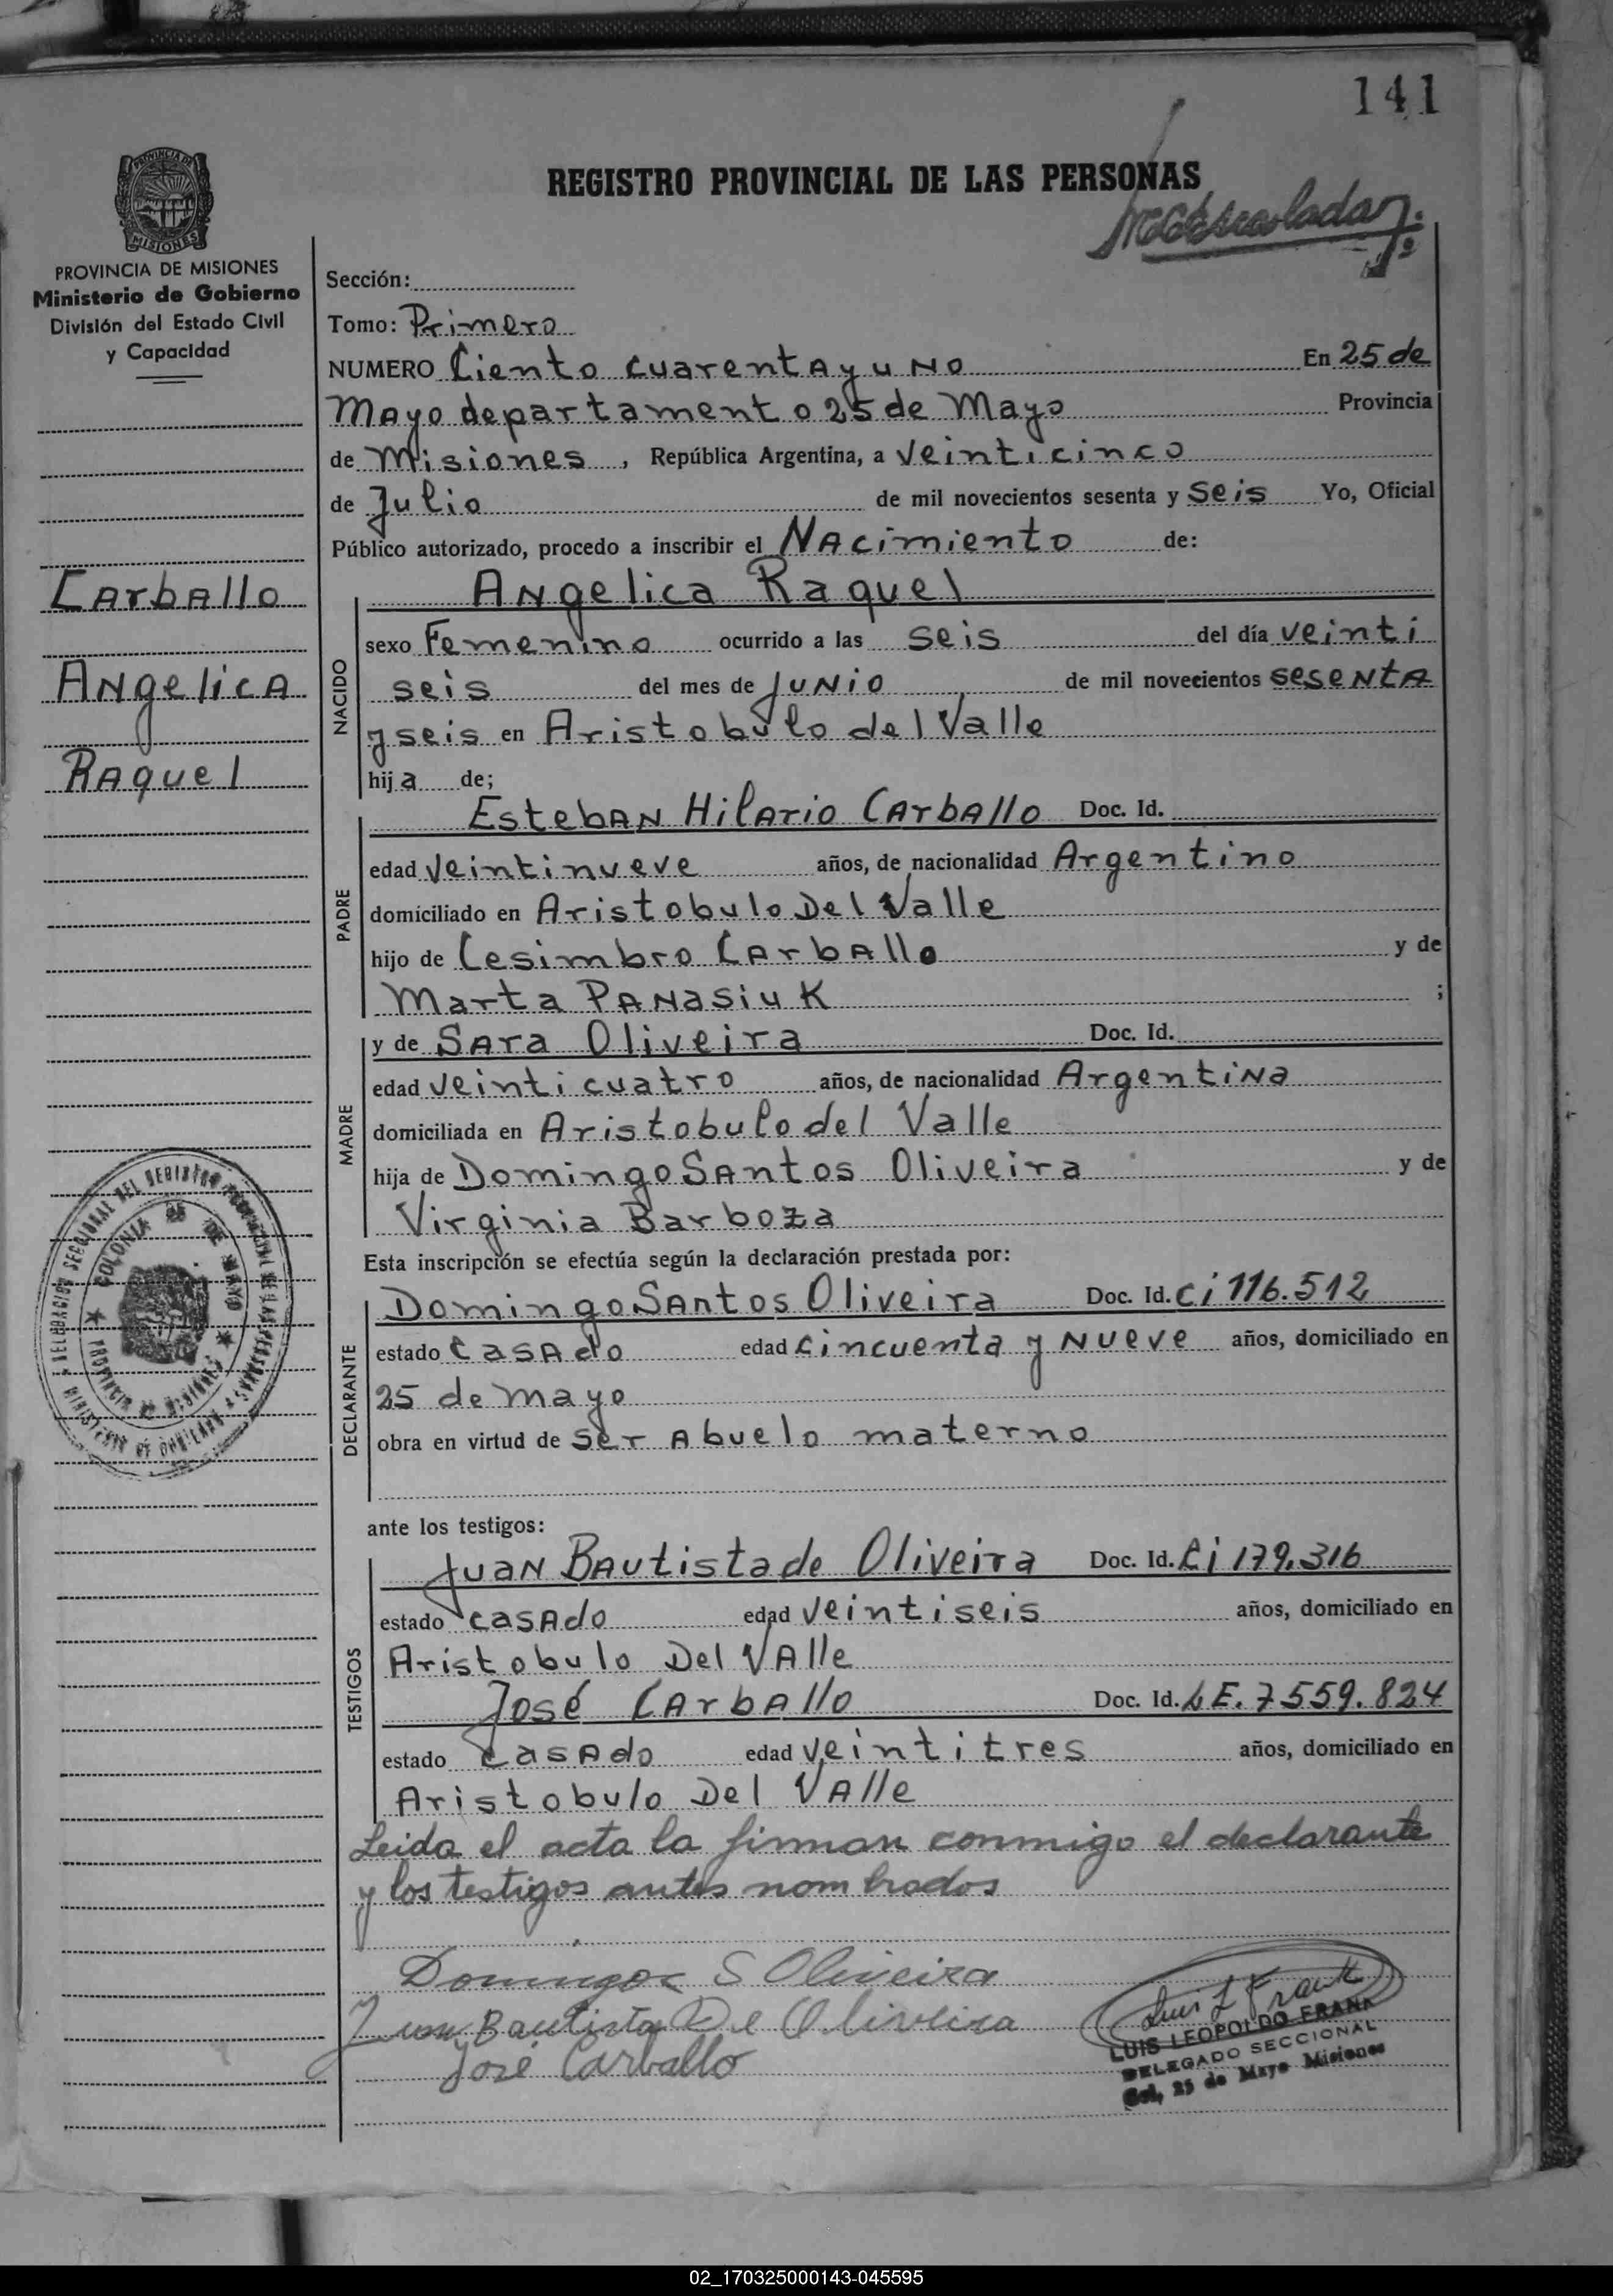 141
REGISTRO PROVINCIAL DE LAS PERSONAS
PROVINCIA DE
MISIONES
PROVINCIA DE MISIONES
Ministerio de Gobierno
División del Estado Civil
y Capacidad
Carballo
Angelica
Raquel
Sección:
Tomo: Primero
NUMERO Ciento cuarenta y uno En 25 de
Mayo departamento 25 de Mayo Provincia
de Misiones, República Argentina, a veinticinco
de Julio de mil novecientos sesenta y seis Yo, Oficial
Público autorizado, procedo a inscribir el Nacimiento de:
Angelica Raquel
NACIDO
sexo Femenino ocurrido a las seis del día veinti
seis del mes de Junio de mil novecientos sesenta
y seis en Aristobulo del Valle
hija de;
PADRE
Esteban Hilario Carballo Doc. Id.
edad veintinueve años, de nacionalidad Argentino
domiciliado en Aristobulo Del Valle
hijo de Cesimbro Carballo y de
Marta Panasiuk ;
MADRE
y de Sara Oliveira Doc. Id.
edad veinticuatro años, de nacionalidad Argentina
domiciliada en Aristobulo del Valle
hija de Domingo Santos Oliveira y de
Virginia Barboza
Esta inscripción se efectúa según la declaración prestada por:
DECLARANTE
Domingo Santos Oliveira Doc. Id. Ci 116.512
estado casado edad cincuenta y nueve años, domiciliado en
25 de mayo
obra en virtud de ser Abuelo materno
ante los testigos:
TESTIGOS
Juan Bautista de Oliveira Doc. Id. Ci 179.316
estado casado edad veintiseis años, domiciliado en
Aristobulo Del Valle
José Carballo Doc. Id. LE. 7559.824
estado casado edad veintitres años, domiciliado en
Aristobulo Del Valle
Leida el acta la firman conmigo el declarante
y los testigos antes nombrados
Domingo S Oliveira
Juan Bautista De Oliveira
José Carballo
Luis L Frank
LUIS LEOPOLDO FRANK
DELEGADO SECCIONAL
Col. 25 de Mayo Misiones
COLONIA 25 DE MAYO
PROVINCIA DE MISIONES
02_170325000143-045595